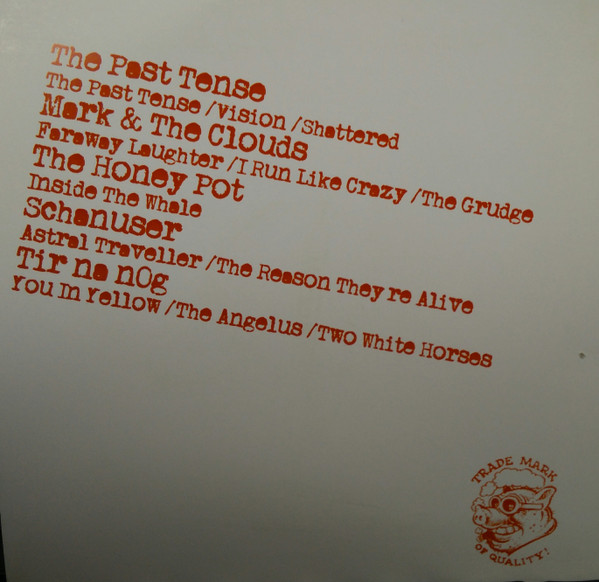 The Past Tense
The Past Tense /Vision /Shattered
Mark & The Clouds
Faraway Laughter /I Run Like Crazy /The Grudge
The Honey Pot
Inside The Whale
Schanuser
Astral Traveller /The Reason They're Alive
Tir na nOg
You In Yellow /The Angelus /Two White Horses
TRADE MARK
OF QUALITY!